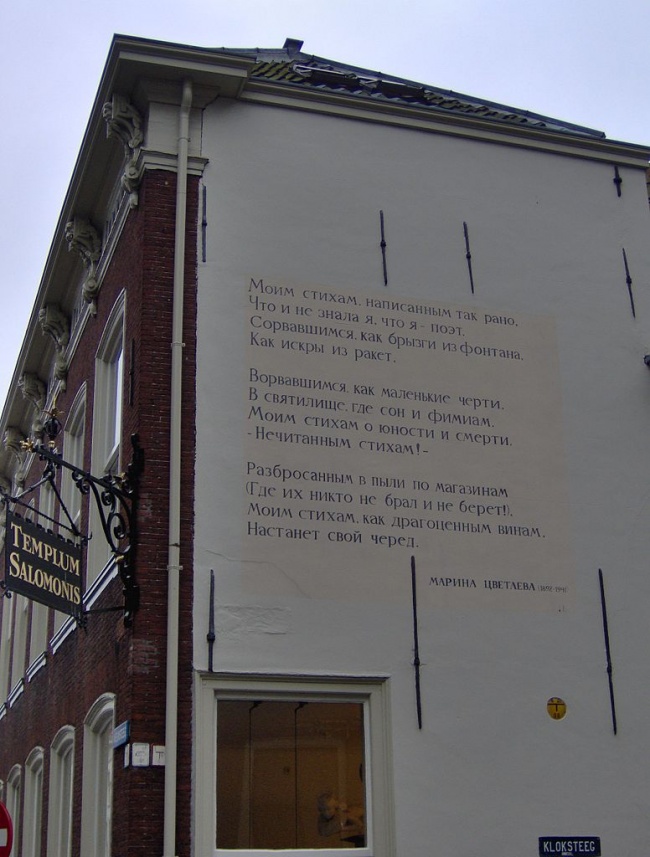 Моим стихам, написанным так рано,
Что и не знала я, что я - поэт,
Сорвавшимся, как брызги из фонтана,
Как искры из ракет,
Ворвавшимся, как маленькие черти,
В святилище, где сон и фимиам,
Моим стихам о юности и смерти,
- Нечитанным стихам! -
Разбросанным в пыли по магазинам
(Где их никто не брал и не берет!),
Моим стихам, как драгоценным винам,
Настанет свой черед.
МАРИНА ЦВЕТАЕВА
TEMPLUM
SALOMONIS
KLOKSTEEG